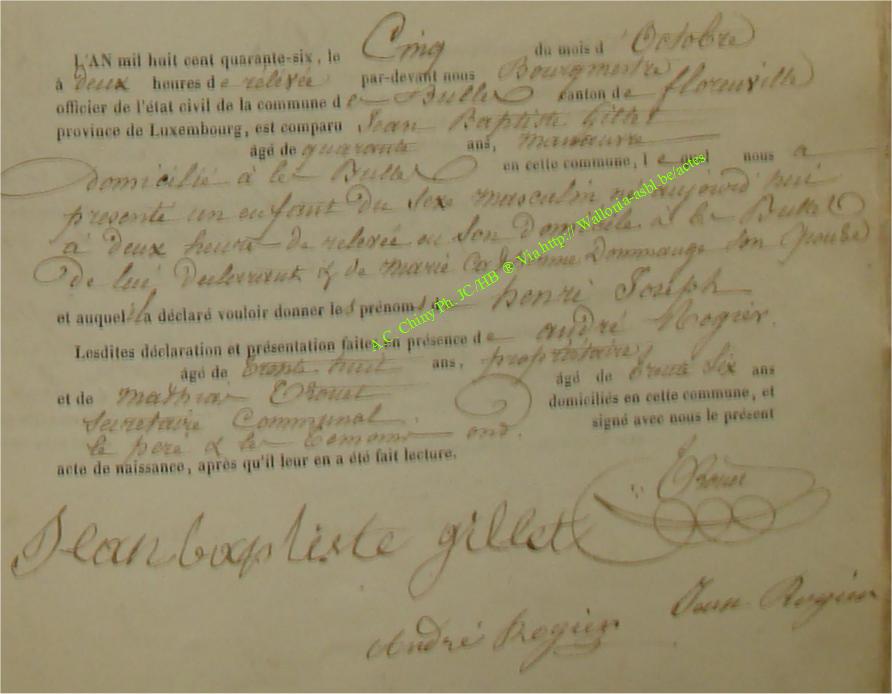 L'AN mil huit cent quarante-six, le Cinq du mois d Octobre
à deux heures de relevée par-devant nous Bourgmestre
officier de l'état civil de la commune de Bulles canton de florenville
province de Luxembourg, est comparu Jean Baptiste Gillet
âgé de quarante ans, manœuvre
domicilié à les Bulles en cette commune, le quel nous a
presenté un enfant du Sexe masculin né aujourd'hui
à deux heure de relevée en son domicile à les Bulles
de lui declarant & de marie Dommange son epouse
et auquel il a déclaré vouloir donner les prénoms de henri Joseph
Lesdites déclaration et présentation faites en présence de andré Rogier
âgé de trente huit ans, propriétaire
et de mathias Trouet âgé de trente six ans
Secretaire Communal domiciliés en cette commune, et
le pere & les temoins ond signé avec nous le présent
acte de naissance, après qu'il leur en a été fait lecture.
Trouet
Jean baptiste gillet
Jean Rogier
André Rogier
A.C. Chiny Ph. JC/HB ® Via http:// Wallonia-asbl.be/actes